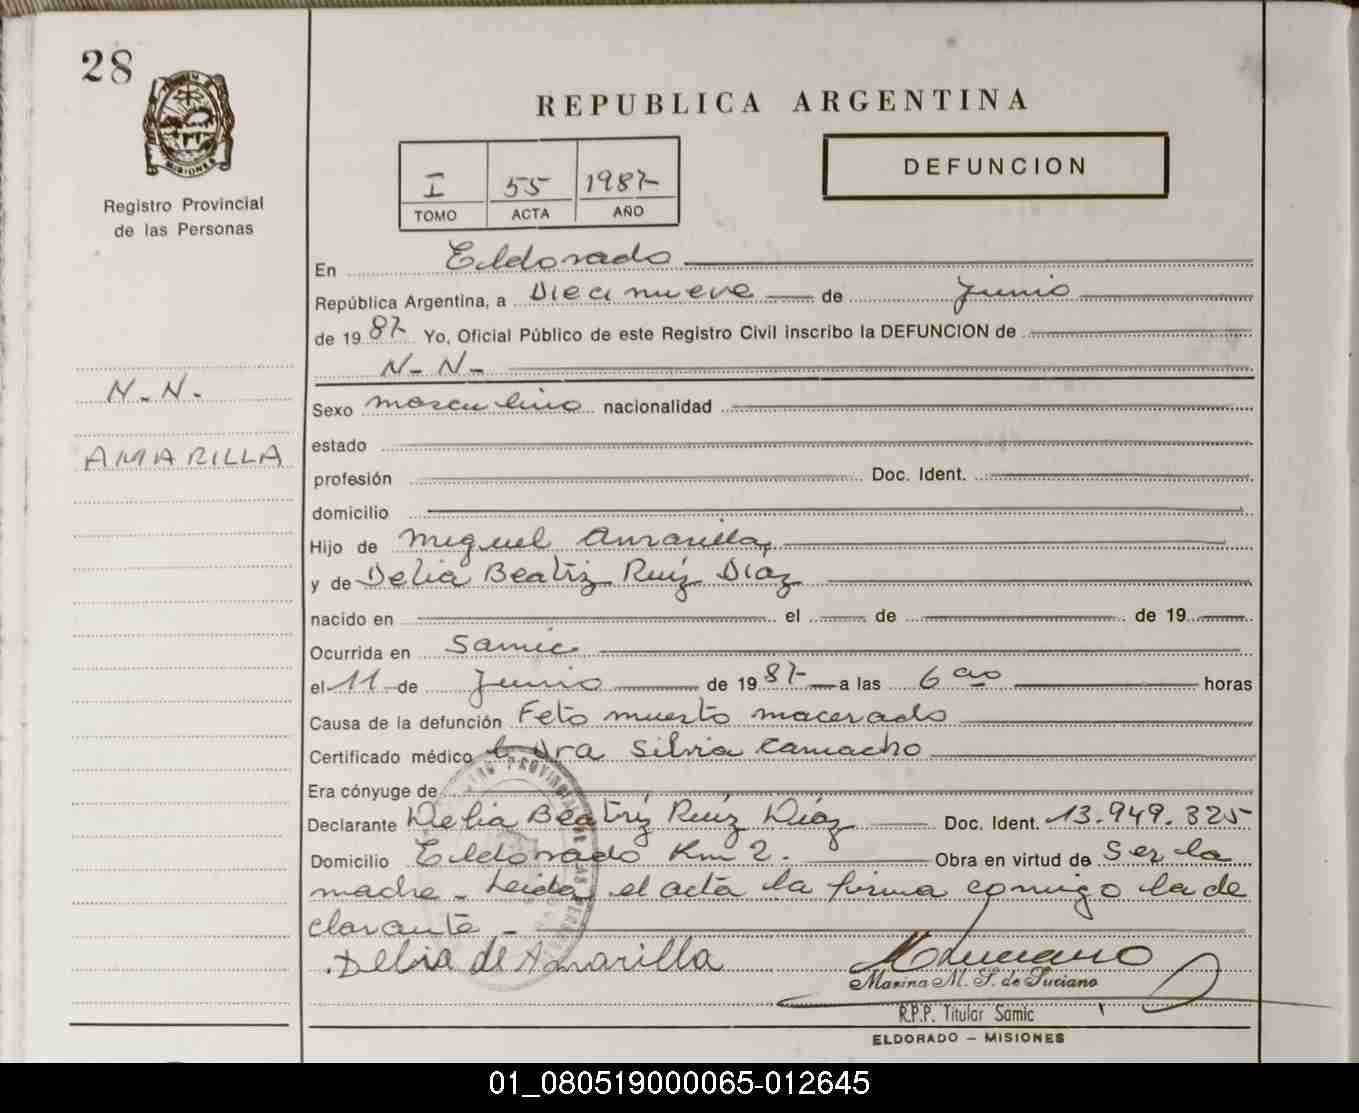 28
MISIONES
Registro Provincial
de las Personas
N. N.
AMARILLA
REPUBLICA ARGENTINA
I 55 1987-
TOMO ACTA AÑO
DEFUNCION
En Eldorado
República Argentina, a Diecinueve de Junio
de 1987- Yo, Oficial Público de este Registro Civil inscribo la DEFUNCION de
N- N-
Sexo masculino nacionalidad
estado
profesión Doc. Ident.
domicilio
Hijo de Miguel Amarilla,
y de Delia Beatriz Ruíz Díaz
nacido en el de de 19
Ocurrida en Samic
el 11 de Junio de 1987- a las 6 horas
Causa de la defunción Feto muerto macerado
Certificado médico Dra Silvia Camacho
Era cónyuge de
Declarante Delia Beatríz Ruíz Díaz Doc. Ident. 13.949.325
Domicilio Eldorado Km 2. Obra en virtud de Ser la
madre - Leida el acta la firma comigo la de
clarante -
Delia de Amarilla
Marina M. S. de Luciano
R.P.P. Titular Samic
ELDORADO - MISIONES
01_080519000065-012645